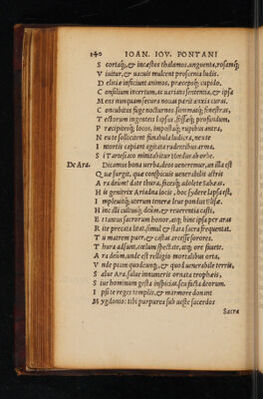 240 IOAN. IOV. PONTANI
S cortaq́;, & incæstos thalamos, unguenta, rosasq́;
V isitur, & uacuis mulcent proscenia ludis.
D elitiæ inficiunt animos, præcepsq́; cupido,
C onsilium incertum, ac uarians sententia, & ipsa
M ens nunquam secura nouas parit anxia curas.
C oncubitus fuge nocturnos
T ectorum ingenteis lapsus, fissasq́; profundum,
P ræcipiteisq́; locos, impostasq́; rupibus antra,
N e aut follicent funabula ludicra, ne ue
I mortis capiant agitata ruderibus arma.
S it artefacto
De Ara. Dicamus bona uerba, deos ueneremur, an illa est
Q uæ surgit, quæ conspicuis uenerabilis astris
A ra deûm? date thura, ficeisq́; adolete tabaras.
H is genitrix Ariadna locis, hoc sydere lapsa est,
I mpleuitq́; uterum tenera leue pondus
H inc illi cultusq́; deûm, & reuerentia casti,
E t uatus sacrorum honor, atq́; hinc ipsa per aras
R ite precata litat, simul & stata sacra frequentat.
T u matrem puer, & castas arcesse sorores,
T hura adsint, cœlum spectate, atq́; ore fauete.
A ra deûm, unde est relligio mortalibus orta,
V nde pium quodcunq́;, & quod uenerabile terris,
S alue Ara, salue innumeris ornata trophæis,
S iue hominum gesta inspicias, seu facta deorum.
I psi te reges templis, & marmore donant
M ygdonio: tibi purpurea sub ueste sacerdos
Sacra